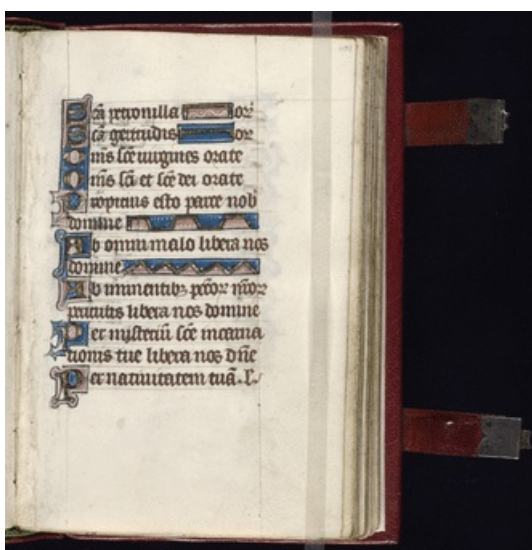 Scā petronilla or
Scā gertrudis or
Oms sce uirgines orate
Oms sci et sce dei orate
Propicius esto parce nob
domine
Ab omni malo libera nos
domine
Ab iminentibʒ pccōꝝ nr̄oꝝ
periculis libera nos domine
Per misteriū sce incarna
tionis tue libera nos dn̄e
Per natiuitatem tuā . l .